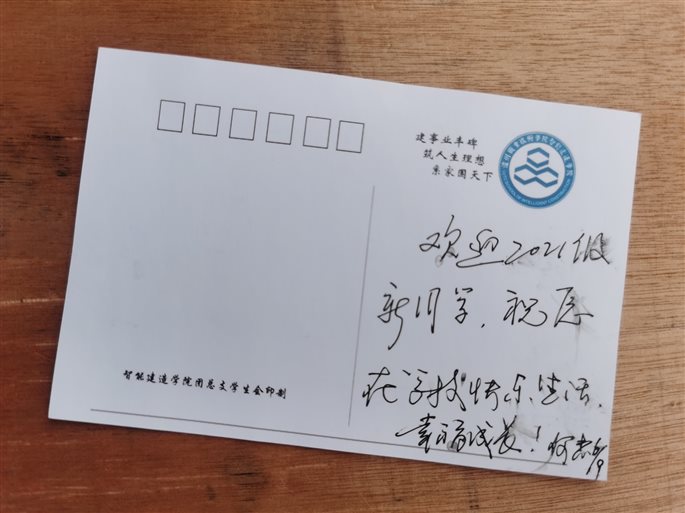 建事业丰碑
筑人生理想
亲家国天下
欢迎2021级
新同学,祝愿
在学校快乐生活,
幸福成长!
智能建造学院团总支学生会印制